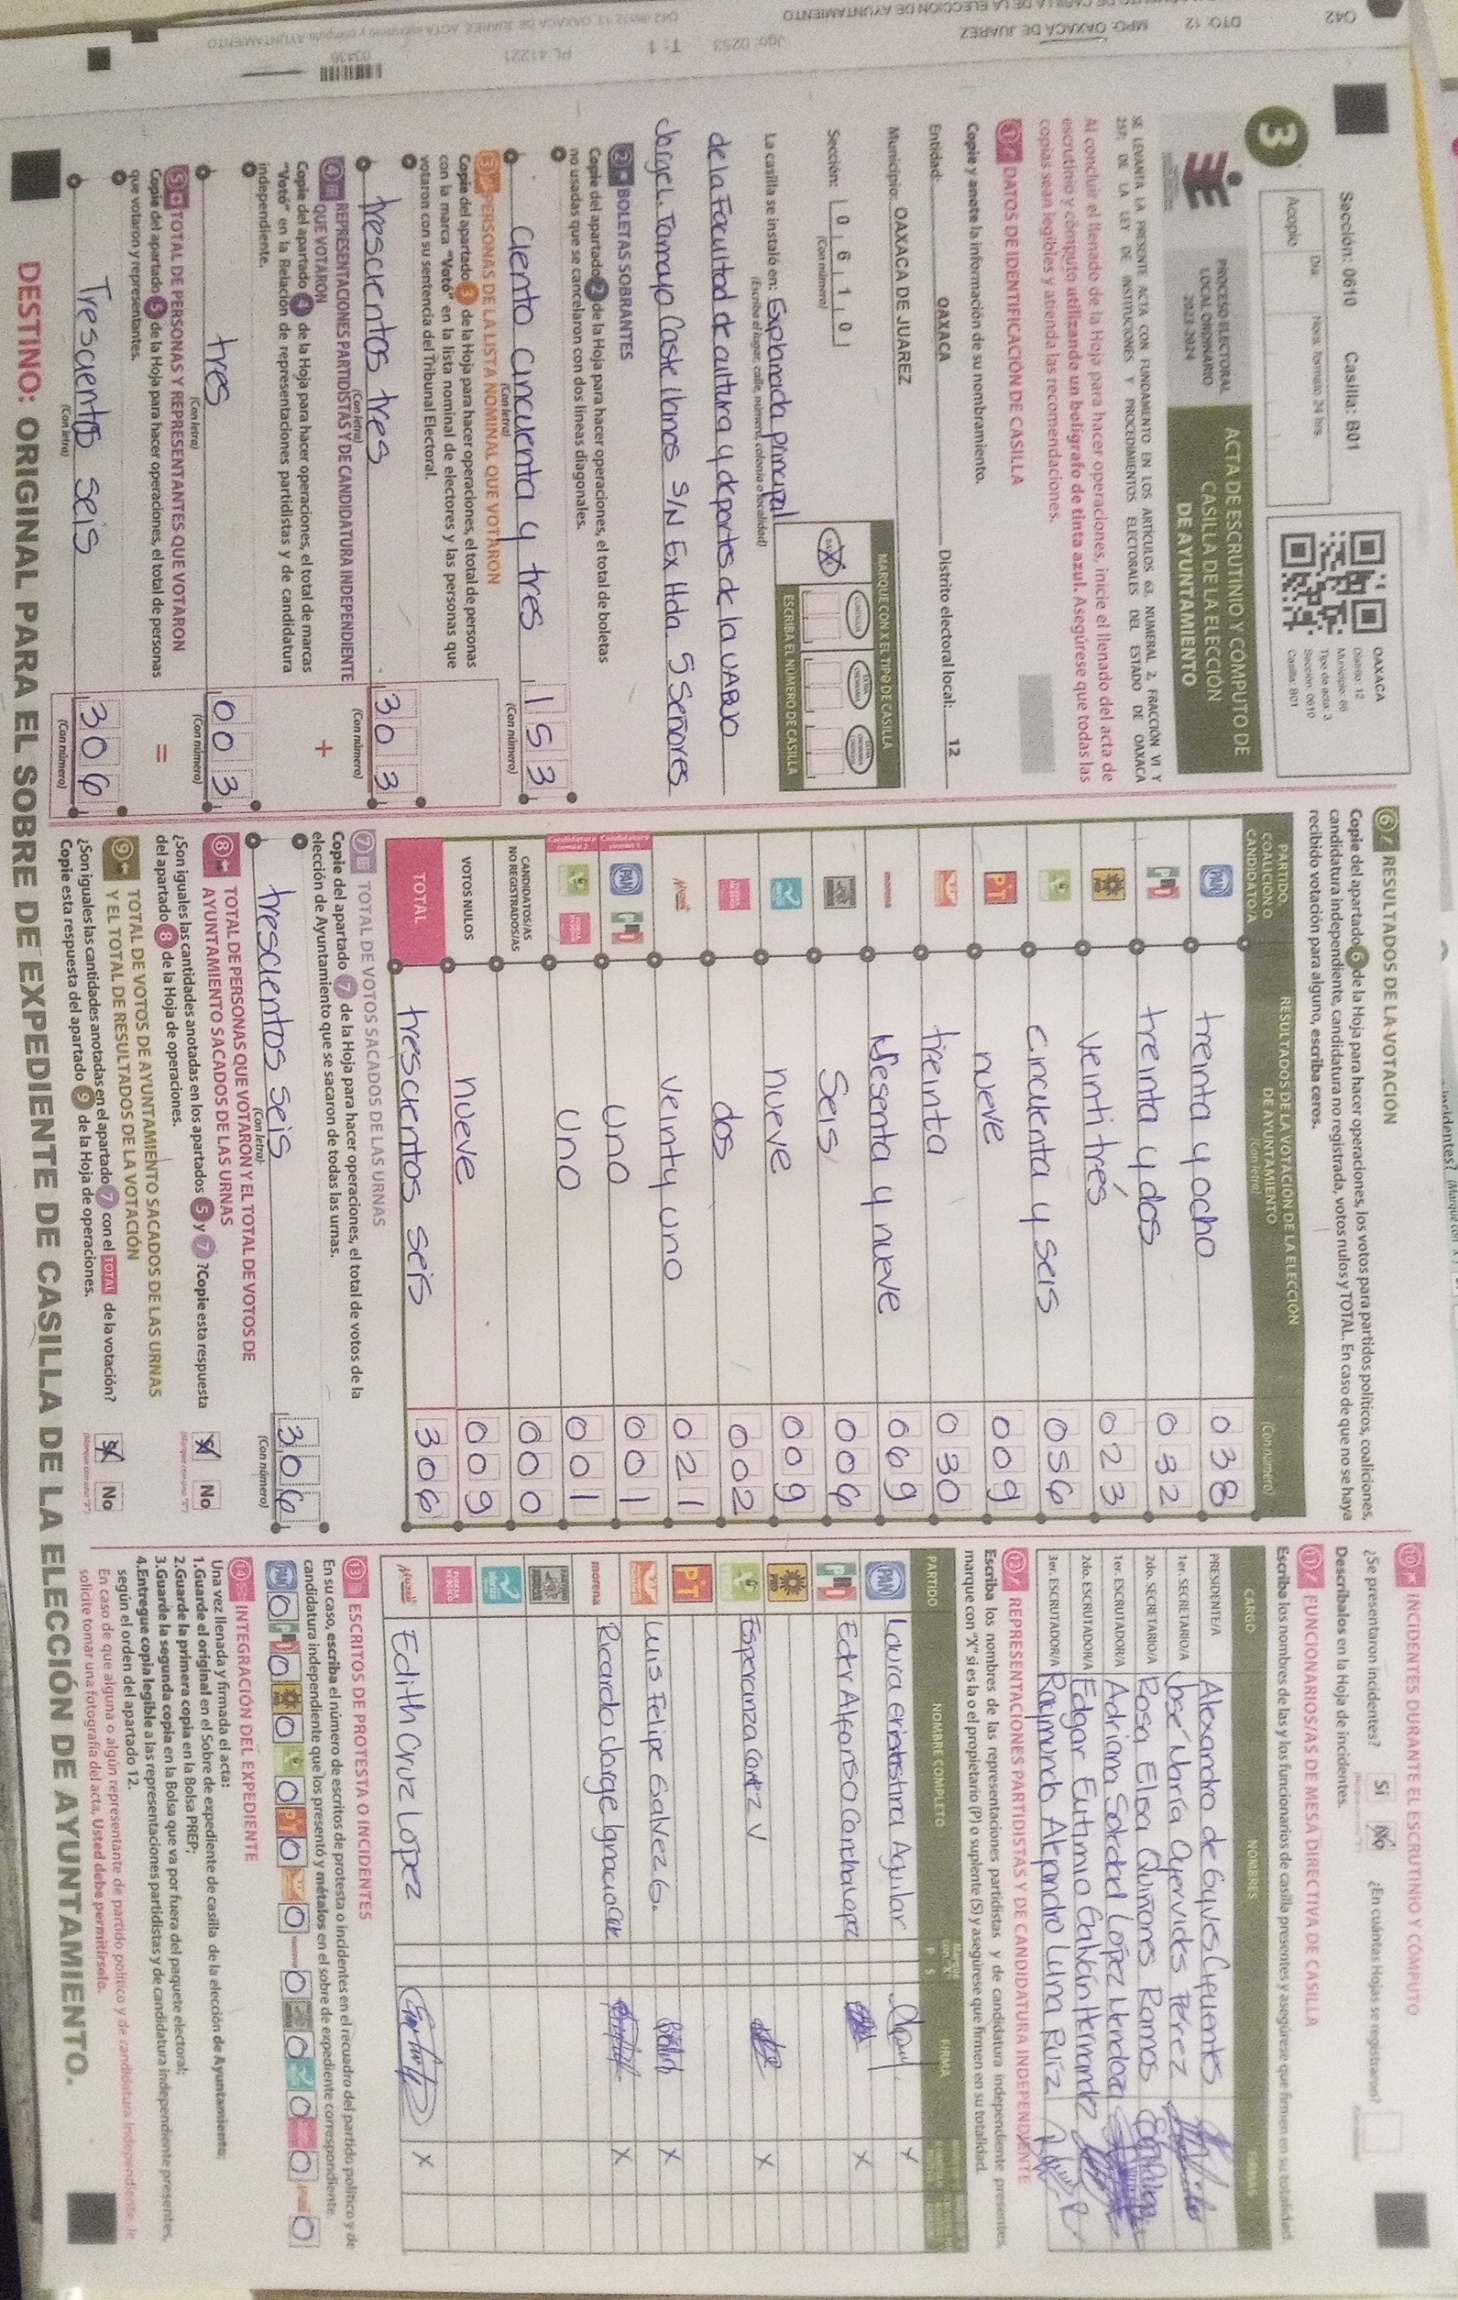 Sección: 0610 Casilla: B01
Día Hora: formato 24 hrs.
Acopio
OAXACA
Distrito: 12
Municipio: 66
Tipo de acta: 3
Sección: 0610
Casilla: B01
3
PROCESO ELECTORAL
LOCAL ORDINARIO
2023-2024
ACTA DE ESCRUTINIO Y CÓMPUTO DE
CASILLA DE LA ELECCIÓN
DE AYUNTAMIENTO
SE LEVANTA LA PRESENTE ACTA CON FUNDAMENTO EN LOS ARTÍCULOS 63, NUMERAL 2, FRACCIÓN VI Y
257; DE LA LEY DE INSTITUCIONES Y PROCEDIMIENTOS ELECTORALES DEL ESTADO DE OAXACA
Al concluir el llenado de la Hoja para hacer operaciones, inicie el llenado del acta de
escrutinio y cómputo utilizando un bolígrafo de tinta azul. Asegúrese que todas las
copias sean legibles y atienda las recomendaciones.
1 DATOS DE IDENTIFICACIÓN DE CASILLA
Copie y anote la información de su nombramiento.
Entidad: OAXACA Distrito electoral local: 12
Municipio: OAXACA DE JUAREZ
Sección: 0 6 1 0
(Con número)
MARQUE CON X EL TIPO DE CASILLA
ESCRIBA EL NÚMERO DE CASILLA
La casilla se instaló en: Explanada principal
(Escriba el lugar, calle, número, colonia o localidad)
de la Facultad de cultura y deportes de la UABJO
Jorge L. Tamayo Castellanos S/N Ex Hda 5 Señores
2 BOLETAS SOBRANTES
Copie del apartado 2 de la Hoja para hacer operaciones, el total de boletas
no usadas que se cancelaron con dos líneas diagonales.
Ciento cincuenta y tres 153
(Con letra) (Con número)
3 PERSONAS DE LA LISTA NOMINAL QUE VOTARON
Copie del apartado 3 de la Hoja para hacer operaciones, el total de personas
con la marca "Votó" en la lista nominal de electores y las personas que
votaron con su sentencia del Tribunal Electoral.
trescientos tres 303
(Con letra) (Con número)
4 REPRESENTACIONES PARTIDISTAS Y DE CANDIDATURA INDEPENDIENTE
QUE VOTARON +
Copie del apartado 4 de la Hoja para hacer operaciones, el total de marcas
"Votó" en la Relación de representaciones partidistas y de candidatura
independiente.
tres 003
(Con letra) (Con número)
5 TOTAL DE PERSONAS Y REPRESENTANTES QUE VOTARON =
Copie del apartado 5 de la Hoja para hacer operaciones, el total de personas
que votaron y representantes.
Trescientos seis 306
(Con letra) (Con número)
6 RESULTADOS DE LA VOTACIÓN
Copie del apartado 6 de la Hoja para hacer operaciones, los votos para partidos políticos, coaliciones,
candidatura independiente, candidatura no registrada, votos nulos y TOTAL. En caso de que no se haya
recibido votación para alguno, escriba ceros.
PARTIDO, COALICIÓN O CANDIDATO/A
RESULTADOS DE LA VOTACIÓN DE LA ELECCIÓN
DE AYUNTAMIENTO
(Con letra) (Con número)
PAN treinta y ocho 038
PRI treinta y dos 032
veinti trés 023
cincuenta y seis 056
PT nueve 009
treinta 030
morena sesenta y nueve 069
Seis 006
nueve 009
dos 002
veinty uno 021
PAN PRI uno 001
uno 001
CANDIDATOS/AS
NO REGISTRADOS/AS 000
VOTOS NULOS nueve 009
TOTAL trescientos seis 306
7 TOTAL DE VOTOS SACADOS DE LAS URNAS
Copie del apartado 7 de la Hoja para hacer operaciones, el total de votos de la
elección de Ayuntamiento que se sacaron de todas las urnas.
trescientos seis 306
(Con letra) (Con número)
8 TOTAL DE PERSONAS QUE VOTARON Y EL TOTAL DE VOTOS DE
AYUNTAMIENTO SACADOS DE LAS URNAS
¿Son iguales las cantidades anotadas en los apartados 5 y 7 ? Copie esta respuesta
del apartado 8 de la Hoja de operaciones.
Sí No
9 TOTAL DE VOTOS DE AYUNTAMIENTO SACADOS DE LAS URNAS
Y EL TOTAL DE RESULTADOS DE LA VOTACIÓN
¿Son iguales las cantidades anotadas en el apartado 7 con el TOTAL de la votación?
Copie esta respuesta del apartado 9 de la Hoja de operaciones.
Sí No
10 INCIDENTES DURANTE EL ESCRUTINIO Y CÓMPUTO
¿Se presentaron incidentes? Sí No ¿En cuántas Hojas se registraron?
Descríbalos en la Hoja de incidentes.
11 FUNCIONARIOS/AS DE MESA DIRECTIVA DE CASILLA
Escriba los nombres de las y los funcionarios de casilla presentes y asegúrese que firmen en su totalidad.
CARGO NOMBRES FIRMAS
PRESIDENTE/A Alexandro de Gyves Cifuentes
1er. SECRETARIO/A José María Oyervides Pérez
2do. SECRETARIO/A Rosa Elea Quiñones Ramos
1er. ESCRUTADOR/A Adriana Soledad López Mendoza
2do. ESCRUTADOR/A Edgar Euthmio Galván Hernandez
3er. ESCRUTADOR/A Raymundo Alejandro Luna Ruíz
12 REPRESENTACIONES PARTIDISTAS Y DE CANDIDATURA INDEPENDIENTE
Escriba los nombres de las representaciones partidistas y de candidatura independiente presentes,
marque con "X" si es la o el propietario (P) o suplente (S) y asegúrese que firmen en su totalidad.
PARTIDO NOMBRE COMPLETO P S FIRMA
PAN Laura Aguilar X
PRI Edcr Alfonso Concha Lopez X
PRD
Esperanza Cortez V X
PT
Luis Felipe Galvez G. X
morena Ricardo Jorge Ignacio X
Edith Cruz Lopez X
13 ESCRITOS DE PROTESTA O INCIDENTES
En su caso, escriba el número de escritos de protesta o incidentes en el recuadro del partido político y de
candidatura independiente que los presentó y métalos en el sobre de expediente correspondiente.
PAN 0 PRI 0 0 0 PT 0 0 0 0 0 0 0
14 INTEGRACIÓN DEL EXPEDIENTE
Una vez llenada y firmada el acta:
1.Guarde el original en el Sobre de expediente de casilla de la elección de Ayuntamiento;
2.Guarde la primera copia en la Bolsa PREP;
3.Guarde la segunda copia en la Bolsa que va por fuera del paquete electoral;
4.Entregue copia legible a las representaciones partidistas y de candidatura independiente presentes,
según el orden del apartado 12.
En caso de que alguna o algún representante de partido político y de candidatura independiente, le
solicite tomar una fotografía del acta, Usted debe permitírselo.
DESTINO: ORIGINAL PARA EL SOBRE DE EXPEDIENTE DE CASILLA DE LA ELECCIÓN DE AYUNTAMIENTO.